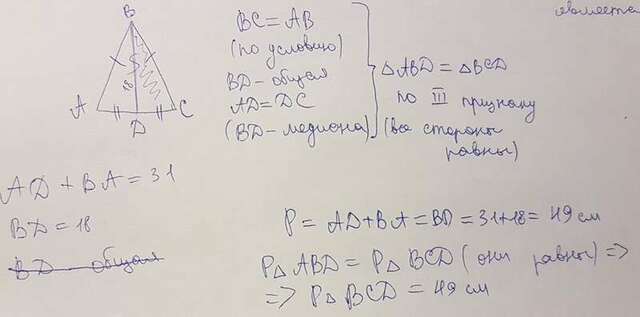 является
B
18
A
D
C
BC = AB
(по условию)
BD - общая
AD = DC
(BD - медиана)
△ABD = △BCD
по III признаку
(все стороны
равны)
AD + BA = 31
BD = 18
BD - общая
P = AD + BA = BD = 31+18 = 49 см
P△ ABD = P△ BCD (они равны) =>
=> P△ BCD = 49 см